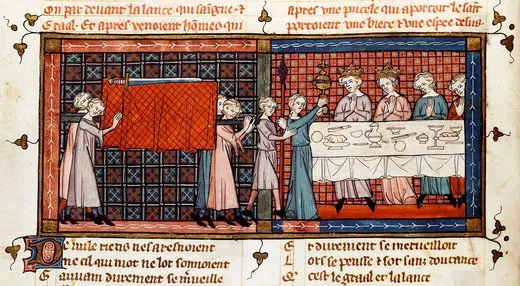 On par devant la lance qui saigne ⁊
Graal. Et apres venoient homes qui
apres vne pucele qui aportoit le saīt
portoient vne biere ⁊ vne espee desus.
De nule riens nes aresnoient
Ne cil qui mot ne lor sonnoient
durement se merueille
Et durement se merueilloit
Lors se pense ⁊ sot sanz doutance
Q c'est le graal et la lance